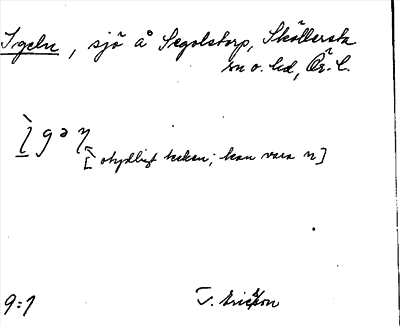 Igeln, sjö å Segolstorp, Sköllersta
sn o. hd, Ör. l.
ì̱gəη
[otydligt tecken; kan vara n]
T. Ericsson
9:1